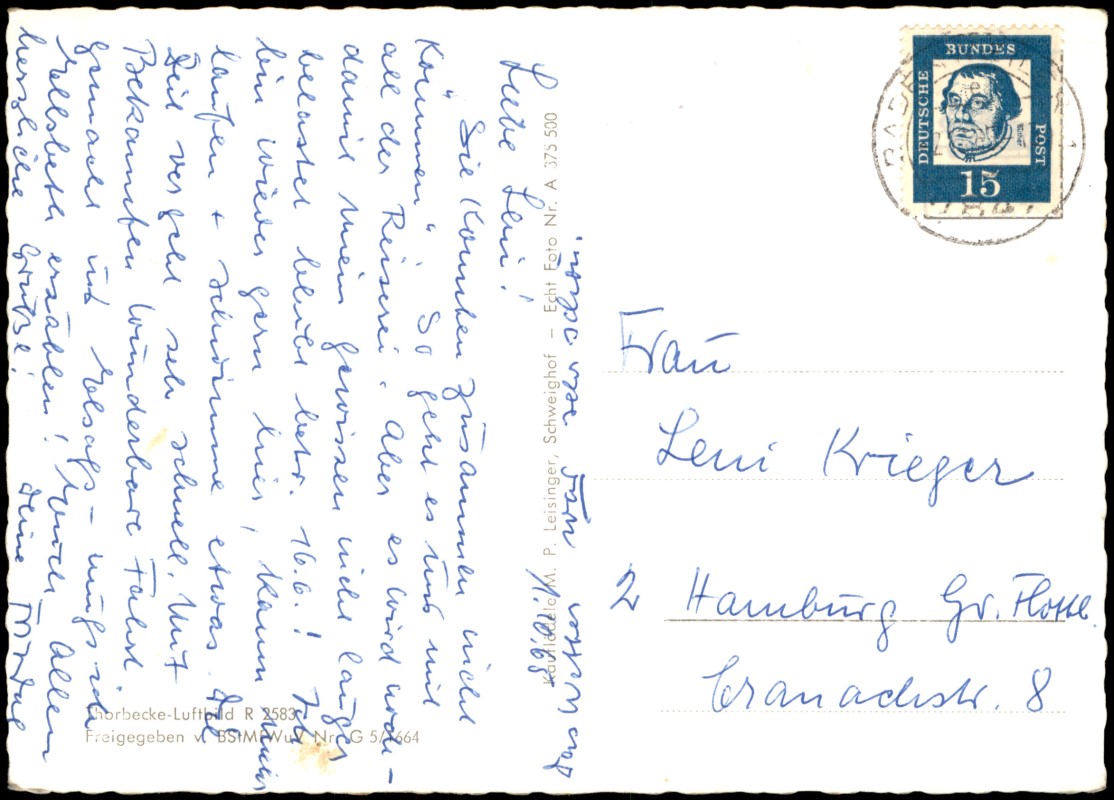 Liebe Leni!
"Sie konnten zusammen nicht
kommen". So geht es uns mit
all der Reiserei. Aber es wird wohl
damit mein Gewissen nicht länger
belastet bleibt betr. 16.6.! Ich
bin wieder gern hier, kann mehr
laufen + schwimme etwas. Die
Zeit vergeht sehr schnell. Mit
Bekannten wunderbare Fahrt
gemacht ins Elsaß - muß ich
Ellsbeth erzählen! Euch allen
herzliche Grüße! Deine
1.10.63
Kaufladele M. P. Leisinger, Schweighof – Echt Foto Nr. A 375 500
Thorbecke-Luftbild R 2583
Freigegeben v. BStMfWuV Nr. G 5/ 664
DEUTSCHE
BUNDES
POST
15
Frau
Leni Krieger
2 Hamburg Gr. Flottb.
Cranachstr. 8